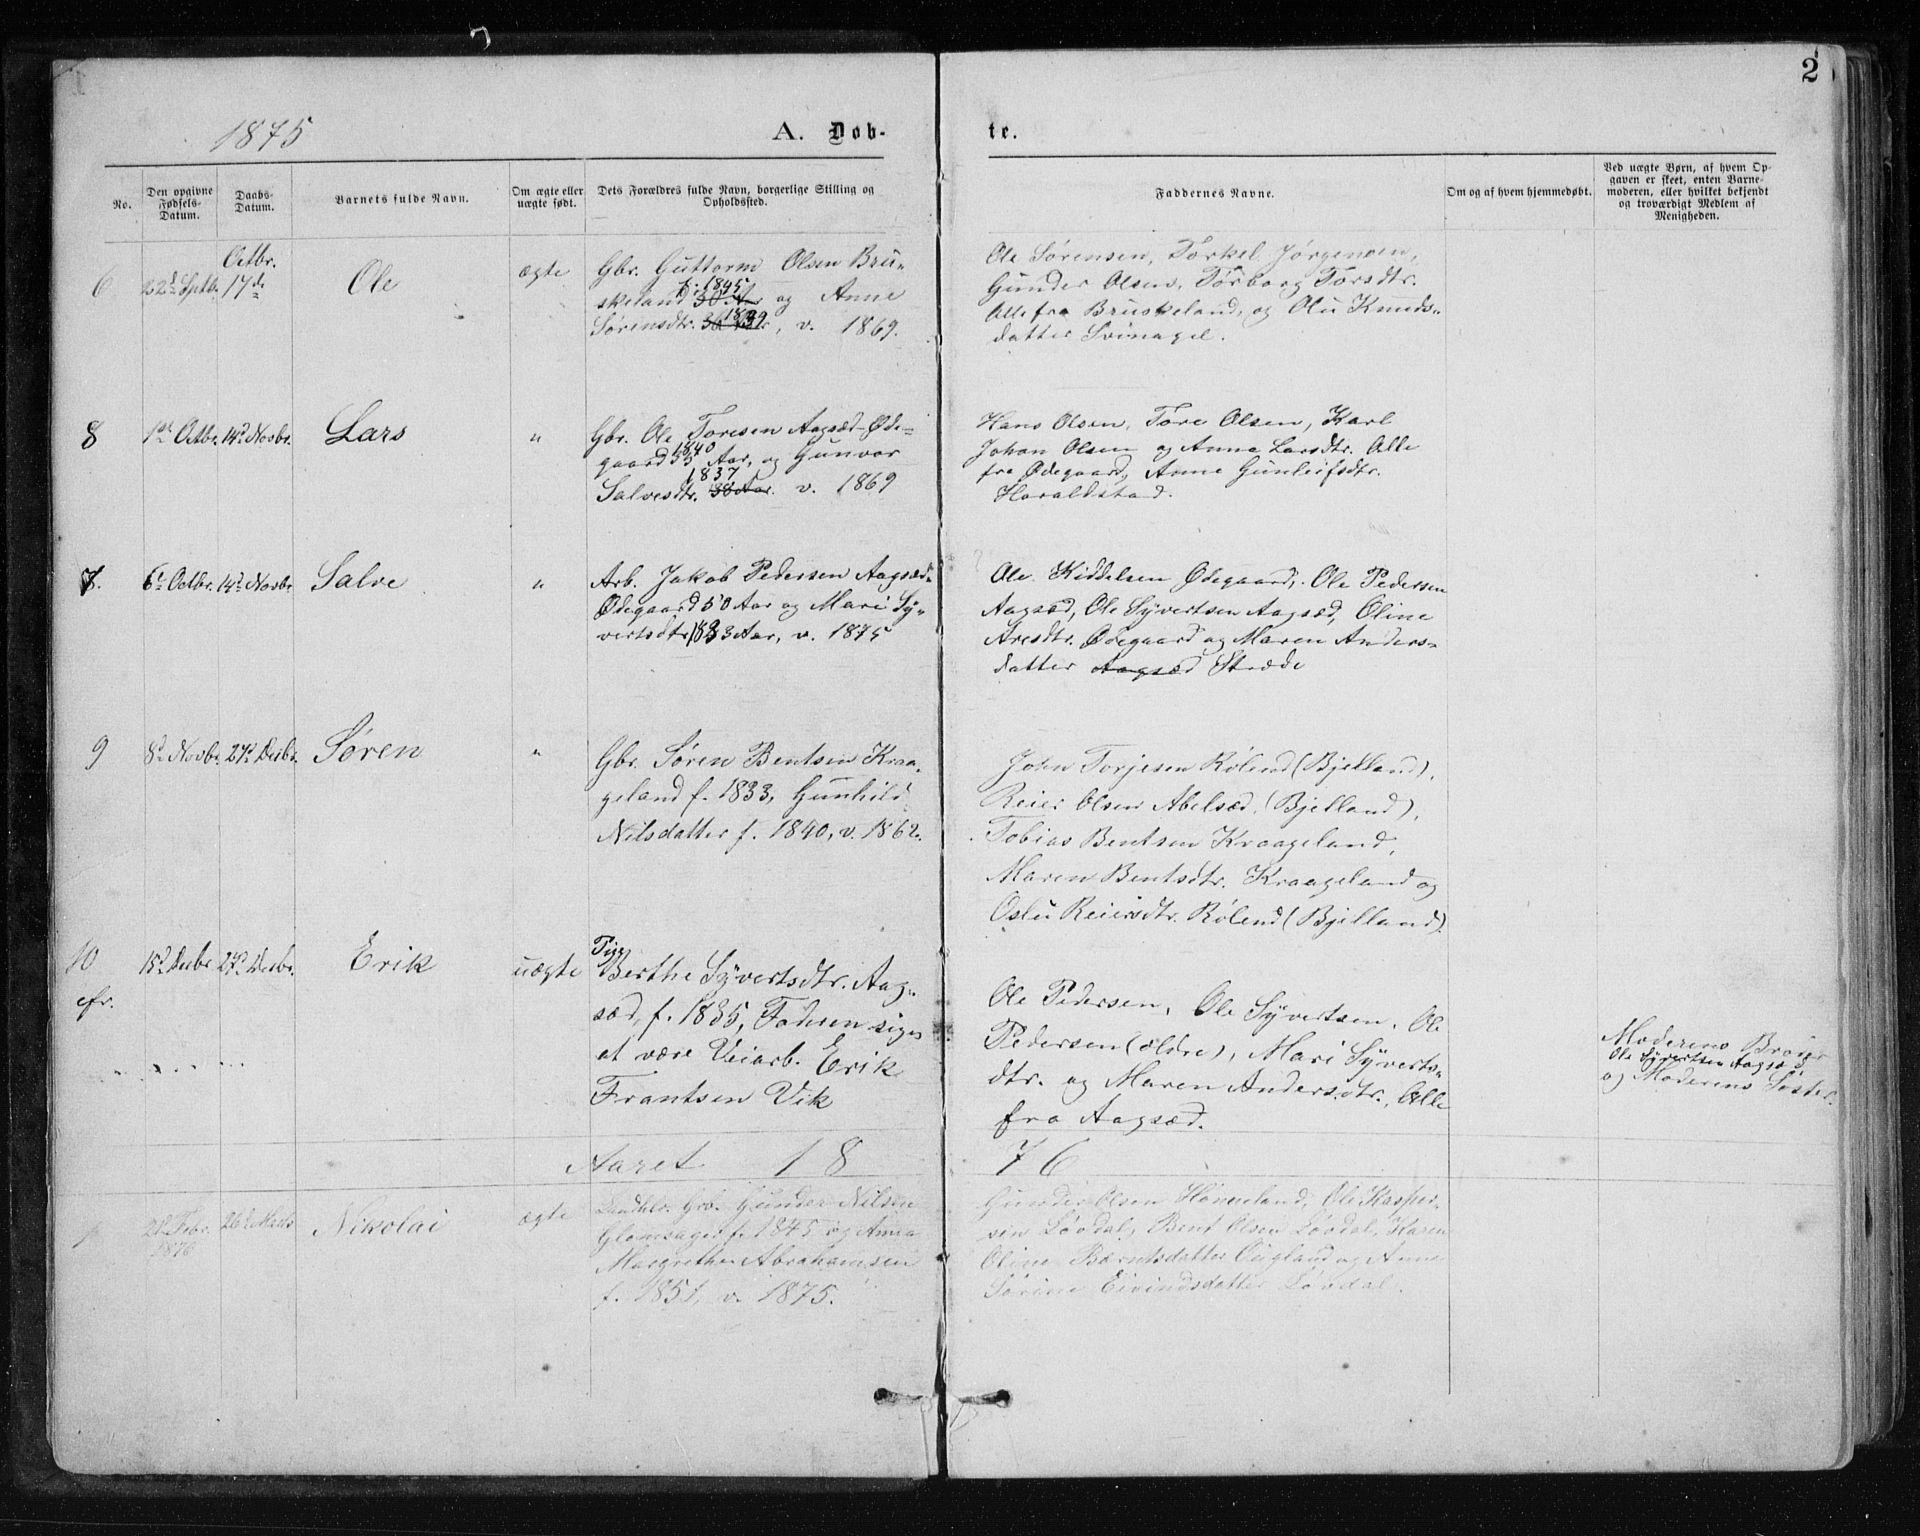 2
1875
A. Døb-
te.
No.
Den opgivne Fødsels-Datum.
Daabs-Datum.
Barnets fulde Navn.
Om ægte eller uægte født.
Dets Forældres fulde Navn, borgerlige Stilling og Opholdssted.
Faddernes Navne.
Om og af hvem hjemmedøbt.
Ved uægte Børn, af hvem Op-
gaven er skeet, enten Barne-
moderen, eller hvilket bekjendt
og troværdigt Medlem af
Menigheden.
6 22d Septbr. Octbr. 17de Ole ægte
Gbr. Guttorm Olsen Bru-
skeland f. 1845 30 Aar og Anne
Sørensdtr. 1839, v. 1869.
Ole Sørensen, Torkel Jørgensen,
Gunder Olsen, Torborg Torsdtr.
Alle fra Bruskeland, og Olu Knuds-
datter Svinagel.
8 1st Octbr. 14d Novbr. Lars "
Gbr. Ole Toresen Aagsæd-Øde-
gaard 1840 35 Aar, og Gunvor
Salvesdtr. 1837 38 Aar. v. 1869
Hans Olsen, Tore Olsen, Karl
Johan Olsen og Anne Larsdtr. Alle
fra Ødegaard, Anne Gunleifsdtr.
Haraldstad.
7. 6t Octbr. 14d Novbr. Salve "
Arb. Jakob Pedersen Aagsæd-
Ødegaard 50 Aar og Mari Sy-
vertsdtr. 1833 Aar, v. 1875
Ole Kiddelsen Ødegaard, Ole Pedersen
Aagsæd, Ole Syvertsen Aagsæd, Oline
Aresdtr. Ødegaard og Maren Anders-
datter Aagsæd Stræde
9 8d Novbr. 27d Decbr. Søren "
Gbr. Søren Bentsen Kraa-
geland f. 1833, Gunhild
Nilsdatter f. 1840, v. 1862.
John Torjesen Rølend (Bjelland),
Reier Olsen Abelsæd, (Bjelland),
Tobias Bentsen Kraageland,
Maren Bentsdtr. Kraageland og
Oslu Reiersdtr. Rølend (Bjelland)
10 15d Decbr. 27d Decbr. Erik uægte
cfr.
Pige
Berthe Syvertsdtr. Aag-
sæd, f. 1835, Faderen siges
at være Veiarb. Erik
Frantsen Vik
Ole Pedersen, Ole Syvertsen, Ole
Pedersen (ældre), Mari Syverts-
dtr. og Maren Andersdtr., Alle
fra Aagsæd.
Moderens Broder
Ole Syvertsen Aagsæd
og Moderens Søster.
Aaret 18
76
1 21d Febr. 1876 26d Marts Nikolai ægte
Gbr. Gunder Nilsen
Glomsaget f. 1845 og Anna
Margrethe Abrahamsen
f. 1851, v. 1875.
Gunder Olsen Hønneland, Ole Kasper-
sen Løvdal, Bent Olsen Løvdal, Karen
Oline Berntsdatter Øugland og Anne
Sørine Eivindsdatter Løvdal.